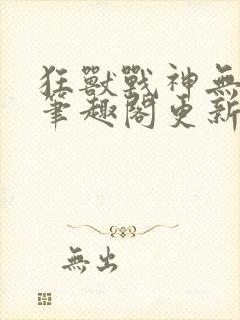 狂獸戰神無
筆趣閣更新
無出